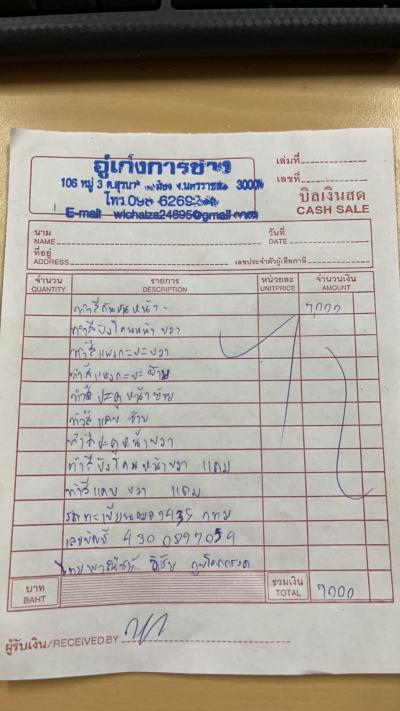 อู่เก่งการช่าง
106 หมู่ 3 ต.สุรนารี จ.นครราชสีมา 30000
โทร.
E-mail wichaiza24695@gmail.com
เล่มที่
เลขที่
บิลเงินสด
CASH SALE
นาม
NAME
วันที่
DATE
ที่อยู่
ADDRESS
เลขประจำตัวผู้เสียภาษี
จำนวน รายการ หน่วยละ จำนวนเงิน
QUANTITY DESCRIPTION UNITPRICE AMOUNT
ทำสีกันชนหน้า 7000
ทำสีบังโคลนหน้า ขวา
ทำสีแพกะบะ ขวา
ทำสีแพกะบะ ซ้าย
ทำสีประตูหน้าซ้าย
ทำสีแคบ ซ้าย
ทำสีประตูหน้าขวา
ทำสีบังโคลนหน้าขวา แถม
ทำสีแคบ ขวา แถม
รถทะเบียน 9435 กทม
เลขบัญชี
บาท
BAHT
รวมเงิน
TOTAL 7000
ผู้รับเงิน/RECEIVED BY